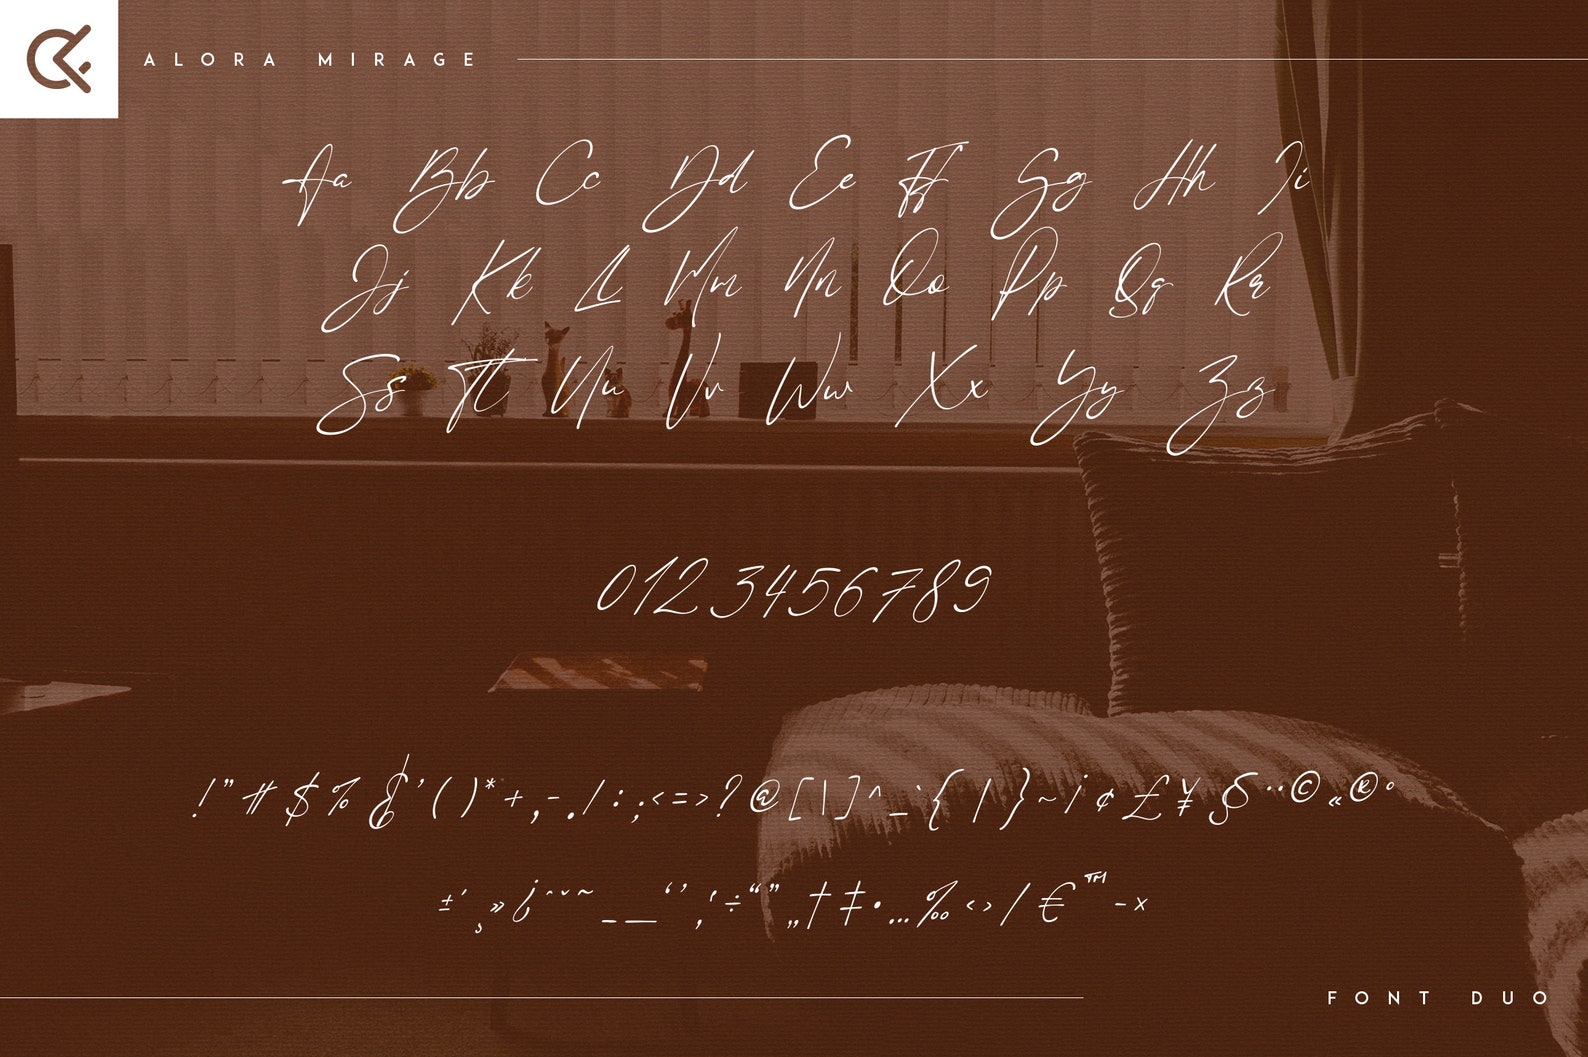 ALORA MIRAGE
Aa Bb Cc Dd Ee Ff Gg Hh Ii
Jj Kk Ll Mm Nn Oo Pp Qq Rr
Ss Tt Uu Vv Ww Xx Yy Zz
0123456789
!"#$%&'()*+,-./:;<=>?@[\]^_`{|}~¡¢£¥§¨©«®°
±´¸»¿ˆˇ˜–—‘’‚‛÷“”„†‡•…‰‹›/€™−×
FONT DUO